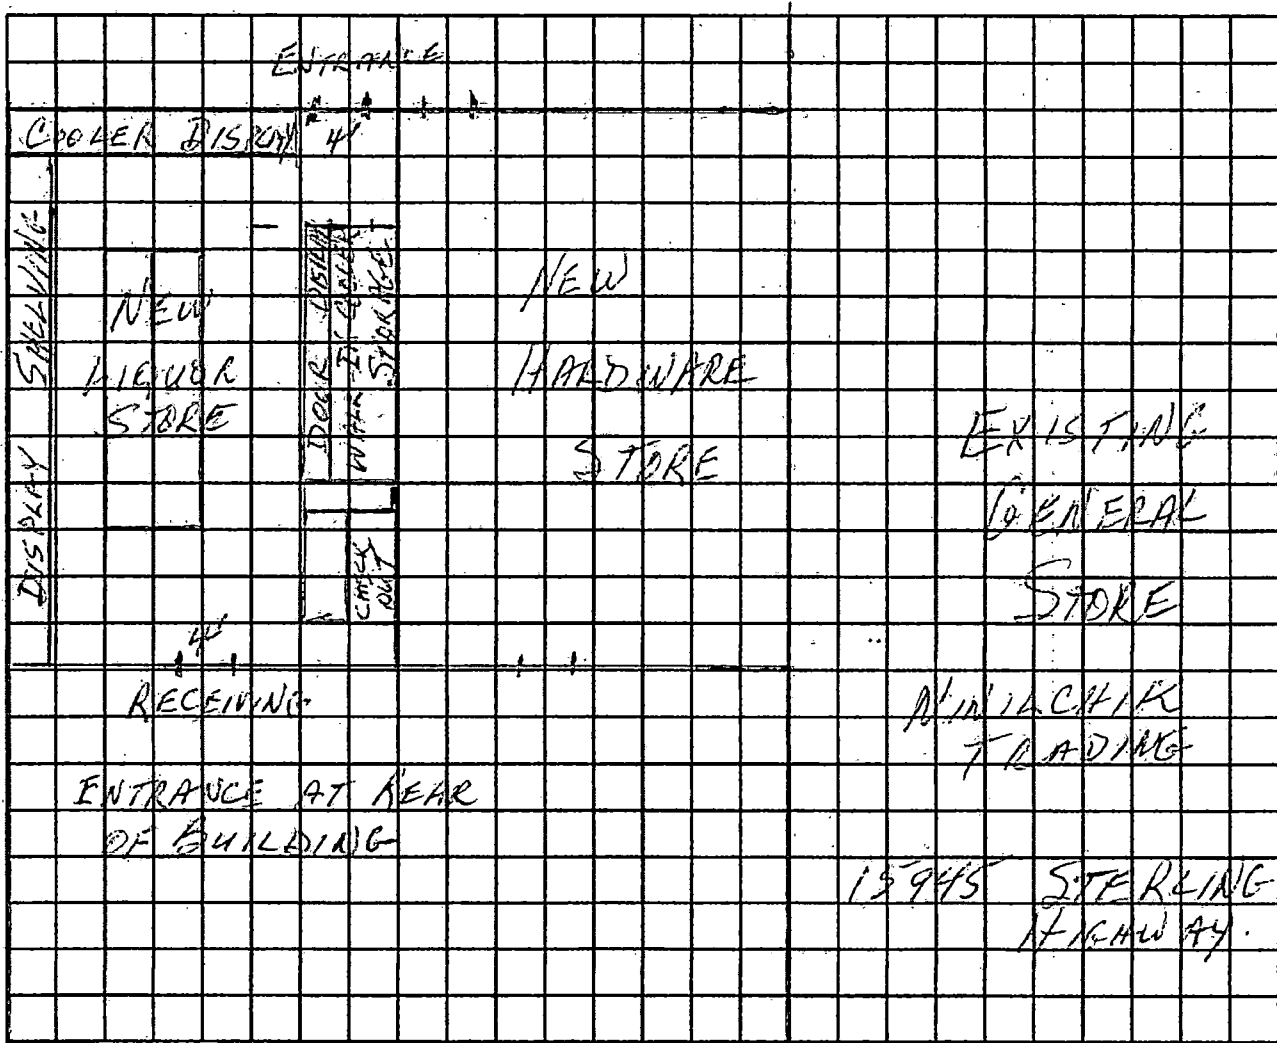 ENTRANCE
COOLER DISPLAY 4'
DISPLAY SHELVING
NEW
LIQUOR
STORE
DOOR DISPLAY
WALK-IN COOLER
STORAGE
CHECK
OUT
NEW
HARDWARE
STORE
EXISTING
GENERAL
STORE
4'
RECEIVING
NINILCHIK
TRADING
ENTRANCE AT REAR
OF BUILDING
15945 STERLING
HIGHWAY.